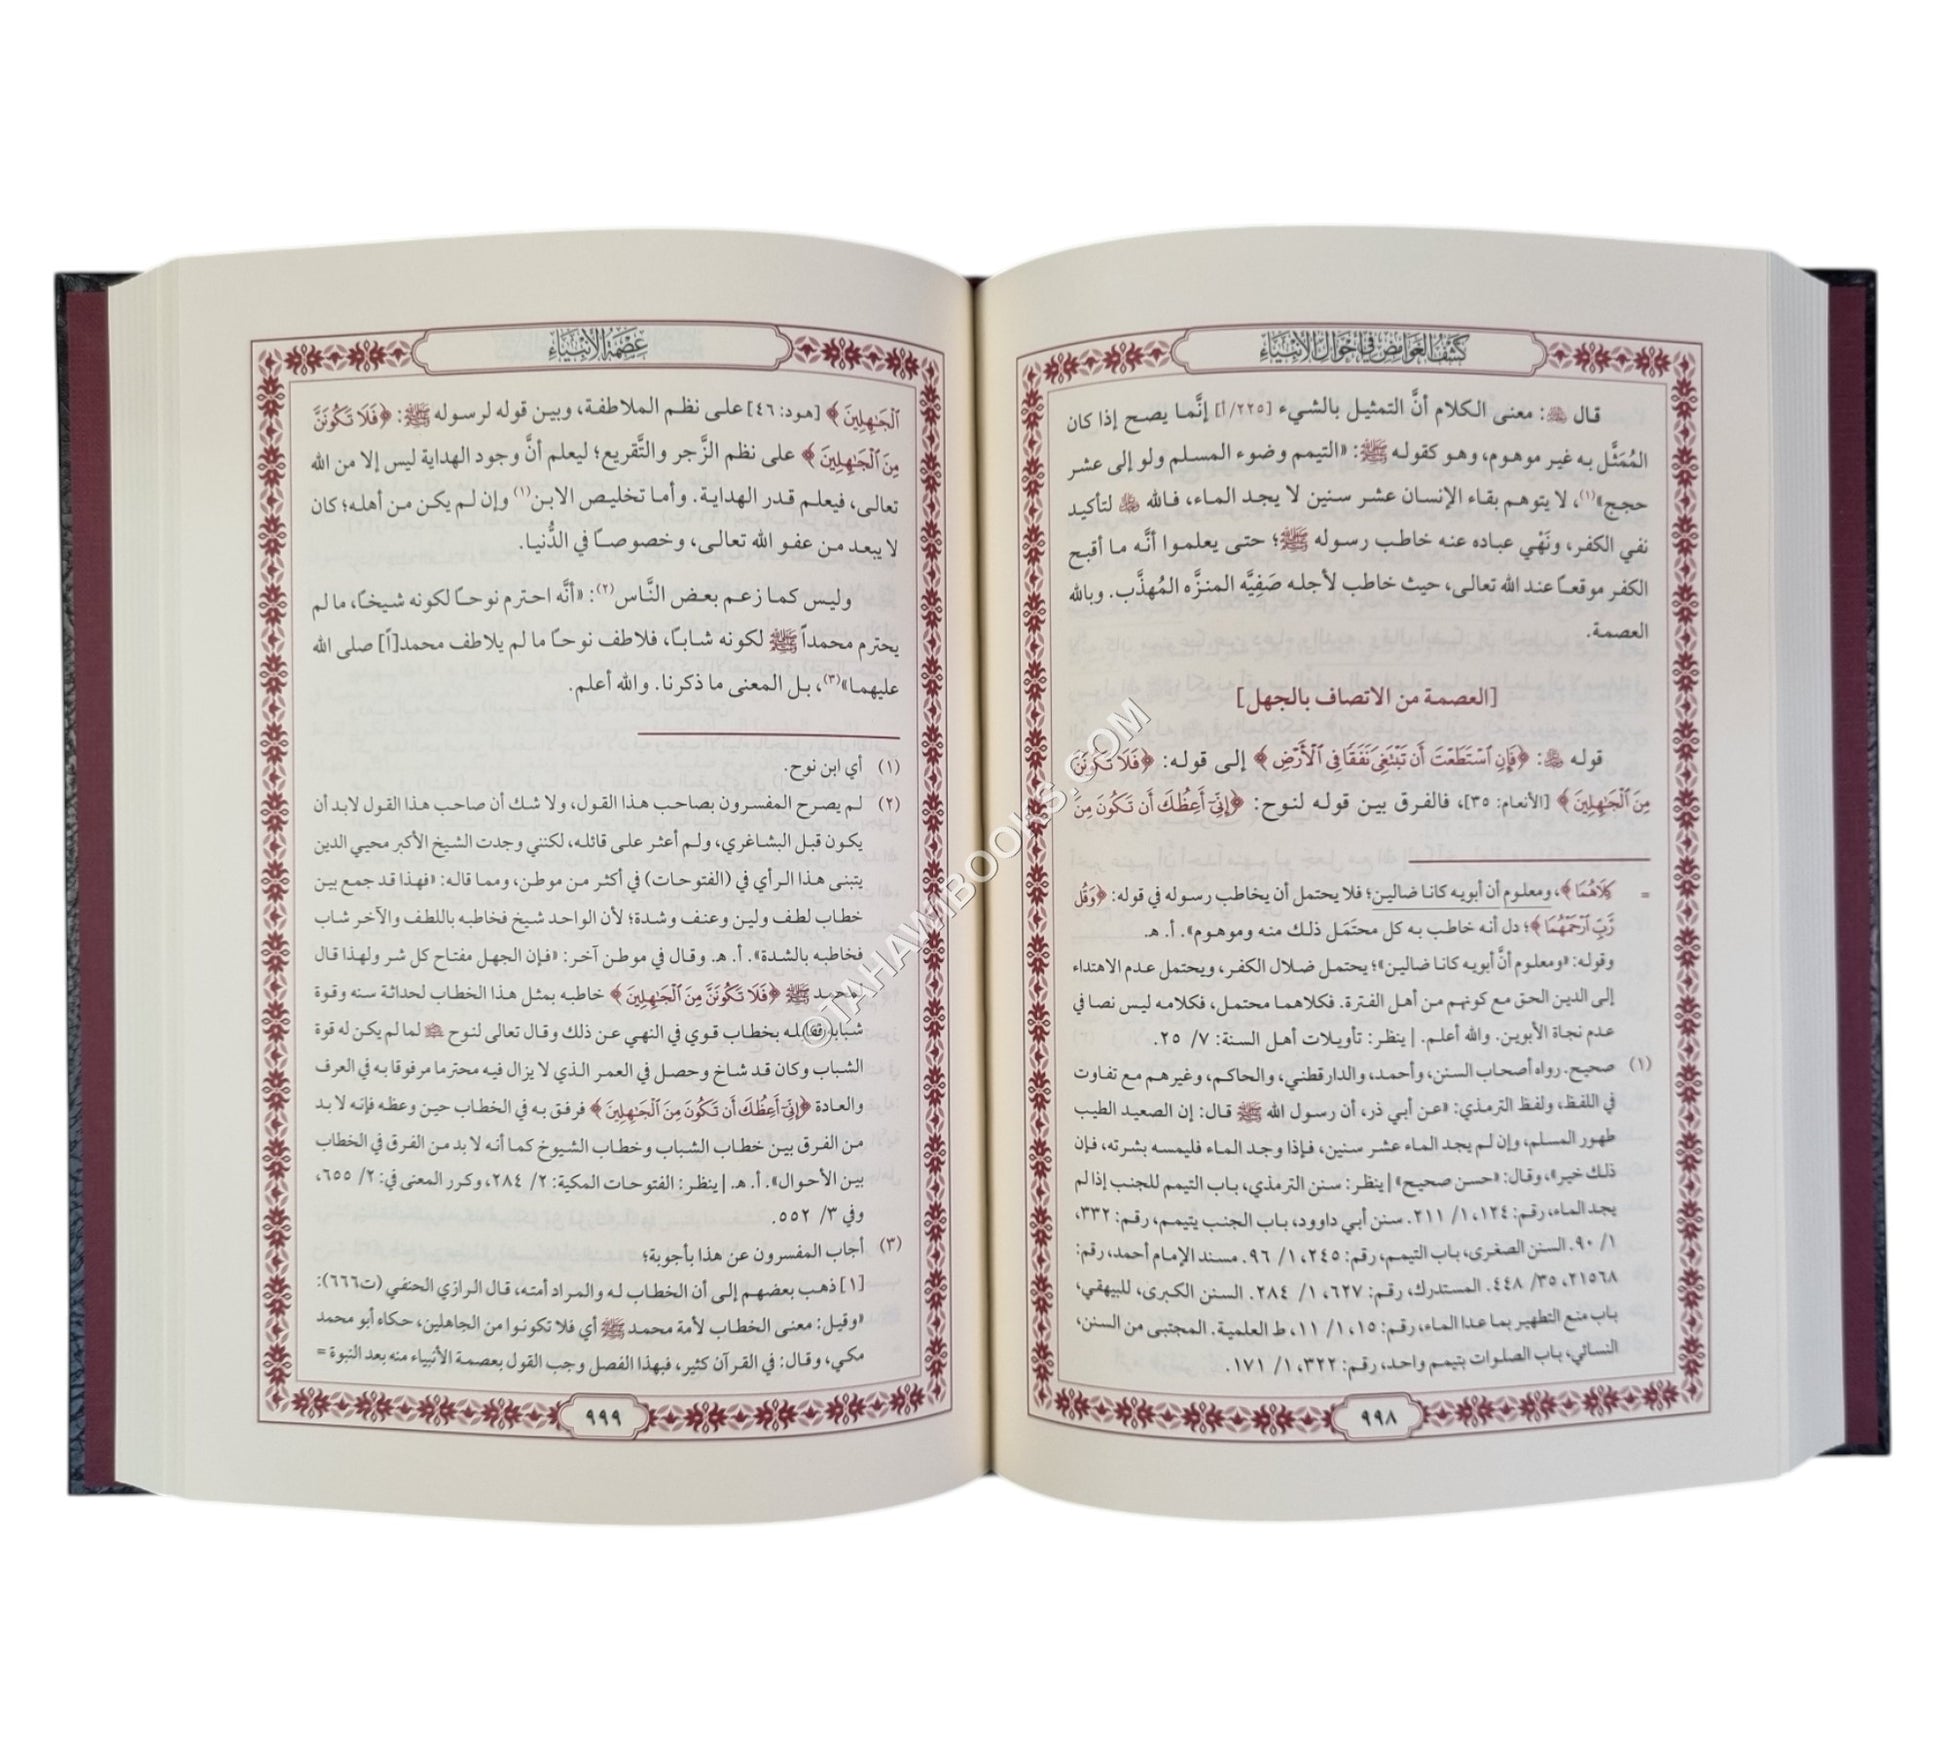 كشف الغوامض في أحوال الأنبياء
قال ﷻ: معنى الكلام أنَّ التمثيل بالشيء [٢٢٥/أ] إنَّما يصح إذا كان
المُمَثَّل به غير موهوم، وهو كقوله ﷺ: «التيمم وضوء المسلم ولو إلى عشر
حجج»(١)، لا يتوهم بقاء الإنسان عشر سنين لا يجد الماء، فالله ﷻ لتأكيد
نفي الكفر، ونَهْي عباده عنه خاطب رسوله ﷺ؛ حتى يعلموا أنَّه ما أقبح
الكفر موقعاً عند الله تعالى، حيث خاطب لأجله صَفِيَّه المنزَّه المُهذَّب. وبالله
العصمة.
[العصمة من الاتصاف بالجهل]
قوله ﷻ: ﴿فَإِنِ ٱسْتَطَعْتَ أَن تَبْتَغِىَ نَفَقًا فِى ٱلْأَرْضِ﴾ إلى قوله: ﴿فَلَا تَكُونَنَّ
مِنَ ٱلْجَـٰهِلِينَ﴾ [الأنعام: ٣٥]، فالفرق بين قوله لنوح: ﴿إِنِّىٓ أَعِظُكَ أَن تَكُونَ مِنَ
= كِلَاهُمَا﴾، ومعلوم أن أبويه كانا ضالين؛ فلا يحتمل أن يخاطب رسوله في قوله: ﴿وَقُل
رَّبِّ ٱرْحَمْهُمَا﴾؛ دل أنه خاطب به كل محتَمَل ذلك منه وموهوم». أ. هـ.
وقوله: «ومعلوم أنَّ أبويه كانا ضالين»؛ يحتمل ضلال الكفر، ويحتمل عدم الاهتداء
إلى الدين الحق مع كونهم من أهل الفترة. فكلاهما محتمل، فكلامه ليس نصا في
عدم نجاة الأبوين. والله أعلم. | ينظر: تأويلات أهل السنة: ٧/ ٢٥.
(١) صحيح. رواه أصحاب السنن، وأحمد، والدارقطني، والحاكم، وغيرهم مع تفاوت
في اللفظ، ولفظ الترمذي: «عن أبي ذر، أن رسول الله ﷺ قال: إن الصعيد الطيب
طهور المسلم، وإن لم يجد الماء عشر سنين، فإذا وجد الماء فليمسه بشرته، فإن
ذلك خير»، وقال: «حسن صحيح» | ينظر: سنن الترمذي، باب التيمم للجنب إذا لم
يجد الماء، رقم: ١٢٤، ١/ ٢١١. سنن أبي داوود، باب الجنب يتيمم، رقم: ٣٣٢،
١/ ٩٠. السنن الصغرى، باب التيمم، رقم: ٢٤٥، ١/ ٩٦. مسند الإمام أحمد، رقم:
٢١٥٦٨، ٣٥/ ٤٤٨. المستدرك، رقم: ٦٢٧، ١/ ٢٨٤. السنن الكبرى، للبيهقي،
باب منع التطهير بما عدا الماء، رقم: ١٥، ١/ ١١، ط العلمية. المجتبى من السنن،
النسائي، باب الصلوات بتيمم واحد، رقم: ٣٢٢، ١/ ١٧١.
٩٩٨
عصمة الأنبياء
ٱلْجَـٰهِلِينَ﴾ [هود: ٤٦] على نظم الملاطفة، وبين قوله لرسوله ﷺ: ﴿فَلَا تَكُونَنَّ
مِنَ ٱلْجَـٰهِلِينَ﴾ على نظم الزَّجر والتَّقريع؛ ليعلم أنَّ وجود الهداية ليس إلا من الله
تعالى، فيعلم قدر الهداية. وأما تخليص الابن(١) وإن لم يكن من أهله؛ كان
لا يبعد من عفو الله تعالى، وخصوصاً في الدُّنيا.
وليس كما زعم بعض النَّاس(٢): «أنَّه احترم نوحاً لكونه شيخاً، ما لم
يحترم محمداً ﷺ لكونه شاباً، فلاطف نوحاً ما لم يلاطف محمد[اً] صلى الله
عليهما»(٣)، بل المعنى ما ذكرنا. والله أعلم.
(١) أي ابن نوح.
(٢) لم يصرح المفسرون بصاحب هذا القول، ولا شك أن صاحب هذا القول لابد أن
يكون قبل البشاغري، ولم أعثر على قائله، لكنني وجدت الشيخ الأكبر محيي الدين
يتبنى هذا الرأي في (الفتوحات) في أكثر من موطن، ومما قاله: «فهذا قد جمع بين
خطاب لطف ولين وعنف وشدة؛ لأن الواحد شيخ فخاطبه باللطف والآخر شاب
فخاطبه بالشدة». أ. هـ. وقال في موطن آخر: «فإن الجهل مفتاح كل شر ولهذا قال
لمحمد ﷺ ﴿فَلَا تَكُونَنَّ مِنَ ٱلْجَـٰهِلِينَ﴾ خاطبه بمثل هذا الخطاب لحداثة سنه وقوة
شبابه فقابله بخطاب قوي في النهي عن ذلك وقال تعالى لنوح ﵇ لما لم يكن له قوة
الشباب وكان قد شاخ وحصل في العمر الذي لا يزال فيه محترما مرفوقا به في العرف
والعادة ﴿إِنِّىٓ أَعِظُكَ أَن تَكُونَ مِنَ ٱلْجَـٰهِلِينَ﴾ فرفق به في الخطاب حين وعظه فإنه لا بد
من الفرق بين خطاب الشباب وخطاب الشيوخ كما أنه لا بد من الفرق في الخطاب
بين الأحوال». أ. هـ. | ينظر: الفتوحات المكية: ٢/ ٢٨٤، وكرر المعنى في: ٢/ ٦٥٥،
وفي ٣/ ٥٥٢.
(٣) أجاب المفسرون عن هذا بأجوبة؛
[١] ذهب بعضهم إلى أن الخطاب له والمراد أمته، قال الرازي الحنفي (ت٦٦٦):
«وقيل: معنى الخطاب لأمة محمد ﷺ أي فلا تكونوا من الجاهلين، حكاه أبو محمد
مكي، وقال: في القرآن كثير، فبهذا الفصل وجب القول بعصمة الأنبياء منه بعد النبوة =
٩٩٩
©TAHAWIBOOKS.COM